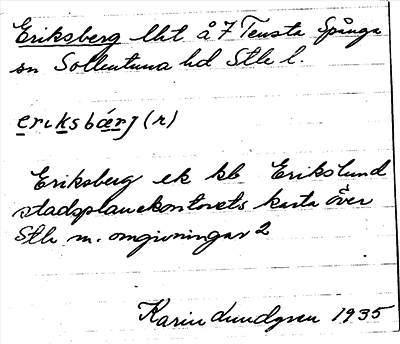 Eriksberg lht å 7 Tensta Spånga
sn Sollentuna hd Sthlm l.
eriksbærj (r)
Eriksberg ek kb Erikslund
stadsplanekontorets karta över
Sthlm m. omgivningar 2
Karin Lundgren 1935